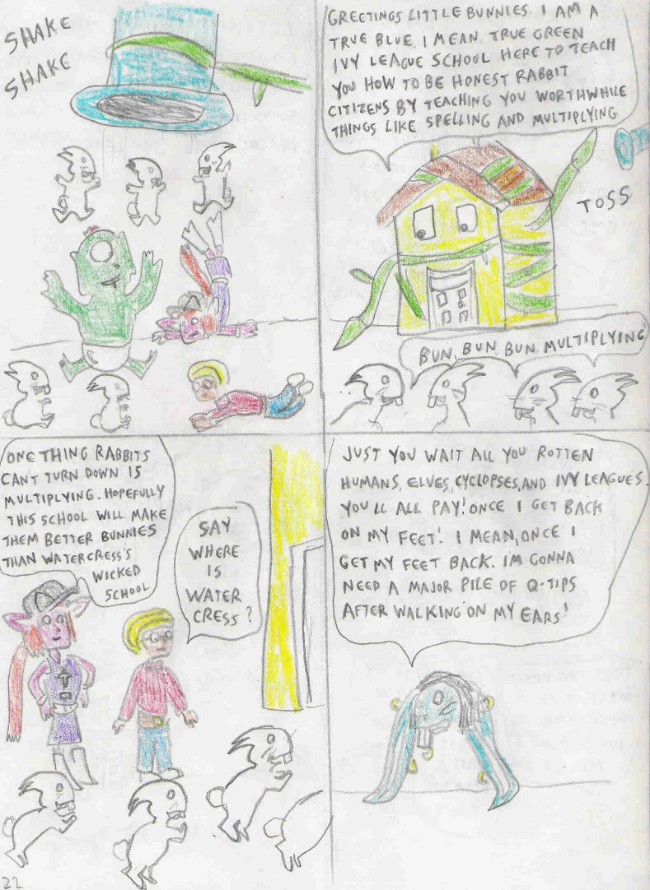 SHAKE
SHAKE
GREETINGS LITTLE BUNNIES. I AM A
TRUE BLUE, I MEAN TRUE GREEN
IVY LEAGUE SCHOOL HERE TO TEACH
YOU HOW TO BE HONEST RABBIT
CITIZENS BY TEACHING YOU WORTHWHILE
THINGS LIKE SPELLING AND MULTIPLYING
TOSS
BUN, BUN, BUN, MULTIPLYING
ONE THING RABBITS
CAN'T TURN DOWN IS
MULTIPLYING. HOPEFULLY
THIS SCHOOL WILL MAKE
THEM BETTER BUNNIES
THAN WATERCRESS'S
WICKED
SCHOOL
SAY
WHERE
IS
WATER
CRESS?
JUST YOU WAIT ALL YOU ROTTEN
HUMANS, ELVES, CYCLOPSES, AND IVY LEAGUES.
YOU'LL ALL PAY! ONCE I GET BACK
ON MY FEET! I MEAN, ONCE I
GET MY FEET BACK. I'M GONNA
NEED A MAJOR PILE OF Q-TIPS
AFTER WALKING ON MY EARS!
22